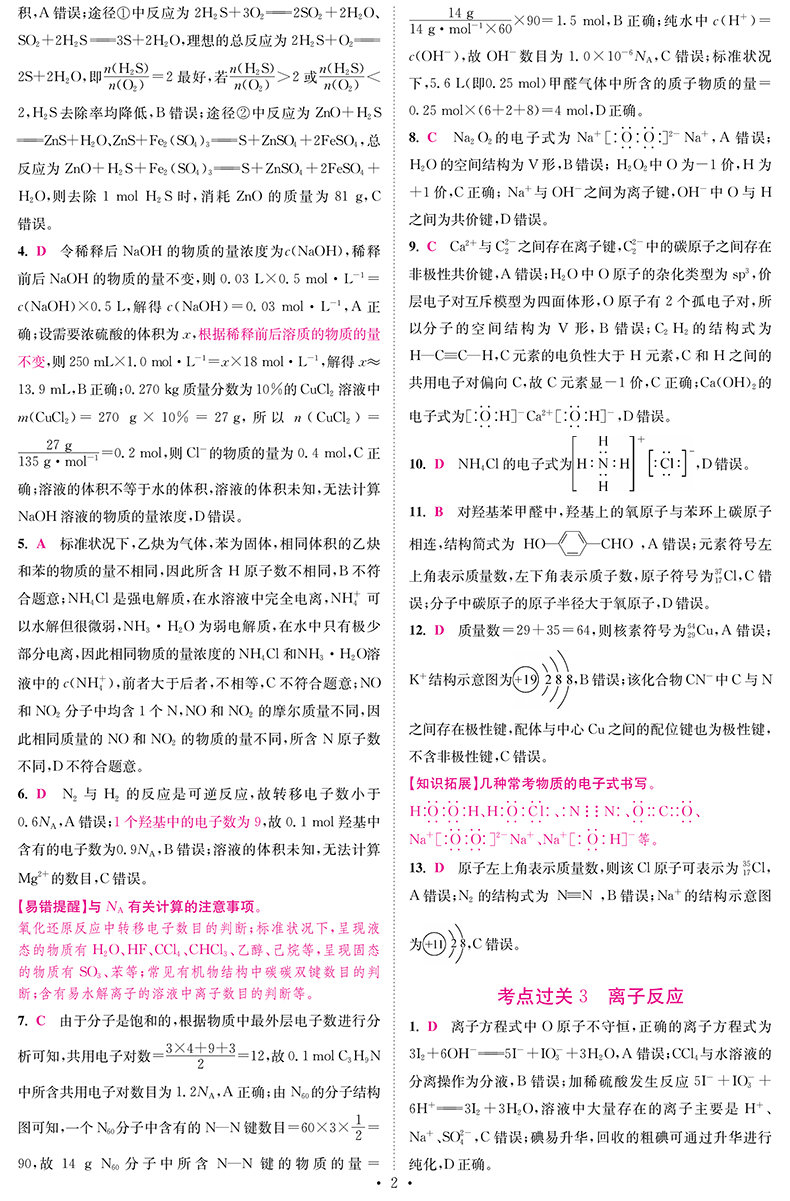 积,A错误;途径①中反应为 2H₂S+3O₂══2SO₂+2H₂O、
SO₂+2H₂S══3S+2H₂O,理想的总反应为 2H₂S+O₂══
2S+2H₂O,即n(H₂S)/n(O₂)=2最好,若n(H₂S)/n(O₂)>2或n(H₂S)/n(O₂)<
2,H₂S去除率均降低,B错误;途径②中反应为 ZnO+H₂S
══ZnS+H₂O、ZnS+Fe₂(SO₄)₃══S+ZnSO₄+2FeSO₄,总
反应为 ZnO+H₂S+Fe₂(SO₄)₃══S+ZnSO₄+2FeSO₄+
H₂O,则去除 1 mol H₂S 时,消耗 ZnO 的质量为 81 g,C
错误。
4. D 令稀释后 NaOH 的物质的量浓度为c(NaOH),稀释
前后 NaOH 的物质的量不变,则 0.03 L×0.5 mol·L⁻¹=
c(NaOH)×0.5 L,解得 c(NaOH)=0.03 mol·L⁻¹,A 正
确;设需要浓硫酸的体积为 x,根据稀释前后溶质的物质的量
不变,则 250 mL×1.0 mol·L⁻¹=x×18 mol·L⁻¹,解得 x≈
13.9 mL,B正确;0.270 kg 质量分数为10%的 CuCl₂ 溶液中
m(CuCl₂)= 270 g × 10% = 27 g, 所以 n(CuCl₂)=
27 g/135 g·mol⁻¹=0.2 mol,则 Cl⁻的物质的量为 0.4 mol,C 正
确;溶液的体积不等于水的体积,溶液的体积未知,无法计算
NaOH 溶液的物质的量浓度,D错误。
5. A 标准状况下,乙炔为气体,苯为固体,相同体积的乙炔
和苯的物质的量不相同,因此所含 H 原子数不相同,B 不符
合题意;NH₄Cl 是强电解质,在水溶液中完全电离,NH₄⁺ 可
以水解但很微弱,NH₃·H₂O 为弱电解质,在水中只有极少
部分电离,因此相同物质的量浓度的 NH₄Cl 和NH₃·H₂O溶
液中的 c(NH₄⁺),前者大于后者,不相等,C 不符合题意;NO
和 NO₂ 分子中均含 1 个 N,NO 和 NO₂ 的摩尔质量不同,因
此相同质量的 NO 和 NO₂ 的物质的量不同,所含 N 原子数
不同,D不符合题意。
6. D N₂ 与 H₂ 的反应是可逆反应,故转移电子数小于
0.6Nᴀ,A 错误;1 个羟基中的电子数为 9,故 0.1 mol 羟基中
含有的电子数为0.9Nᴀ,B 错误;溶液的体积未知,无法计算
Mg²⁺的数目,C错误。
【易错提醒】与 Nᴀ 有关计算的注意事项。
氧化还原反应中转移电子数目的判断;标准状况下,呈现液
态的物质有 H₂O、HF、CCl₄、CHCl₃、乙醇、己烷等,呈现固态
的物质有 SO₃、苯等;常见有机物结构中碳碳双键数目的判
断;含有易水解离子的溶液中离子数目的判断等。
7. C 由于分子是饱和的,根据物质中最外层电子数进行分
析可知,共用电子对数=(3×4+9+3)/2=12,故 0.1 mol C₃H₉N
中所含共用电子对数目为 1.2Nᴀ,A 正确;由 N₆₀的分子结构
图可知,一个 N₆₀分子中含有的 N—N 键数目=60×3×1/2=
90,故 14 g N₆₀ 分子中所含 N—N 键的物质的量=
14 g/(14 g·mol⁻¹×60)×90=1.5 mol,B 正确;纯水中 c(H⁺)=
c(OH⁻),故 OH⁻数目为 1.0×10⁻⁶Nᴀ,C 错误;标准状况
下,5.6 L(即0.25 mol)甲醛气体中所含的质子物质的量=
0.25 mol×(6+2+8)=4 mol,D正确。
8. C Na₂O₂的电子式为 Na⁺[:Ö:Ö:]²⁻Na⁺,A 错误;
H₂O的空间结构为V形,B错误; H₂O₂中 O 为−1 价,H 为
+1 价,C 正确; Na⁺与 OH⁻之间为离子键,OH⁻ 中 O 与 H
之间为共价键,D错误。
9. C Ca²⁺与 C₂²⁻之间存在离子键,C₂²⁻中的碳原子之间存在
非极性共价键,A 错误;H₂O 中 O 原子的杂化类型为 sp³,价
层电子对互斥模型为四面体形,O 原子有 2 个孤电子对,所
以分子的空间结构为 V 形,B 错误;C₂H₂ 的结构式为
H—C≡C—H,C元素的电负性大于 H 元素,C 和 H 之间的
共用电子对偏向 C,故 C 元素显−1 价,C 正确;Ca(OH)₂的
电子式为[:Ö:H]⁻Ca²⁺[:Ö:H]⁻,D错误。
10. D NH₄Cl 的电子式为[H:N:H]⁺[:Cl:]⁻,D错误。
11. B 对羟基苯甲醛中,羟基上的氧原子与苯环上碳原子
相连,结构简式为 HO—⌬—CHO ,A 错误;元素符号左
上角表示质量数,左下角表示质子数,原子符号为³⁷₁₇Cl,C 错
误;分子中碳原子的原子半径大于氧原子,D错误。
12. D 质量数=29+35=64,则核素符号为⁶⁴₂₉Cu,A 错误;
K⁺结构示意图为(+19) 2 8 8,B错误;该化合物 CN⁻中 C 与 N
之间存在极性键,配体与中心 Cu 之间的配位键也为极性键,
不含非极性键,C错误。
【知识拓展】几种常考物质的电子式书写。
H:Ö:Ö:H、H:Ö:Cl:、:N⋮⋮N:、Ö::C::Ö、
Na⁺[:Ö:Ö:]²⁻Na⁺、Na⁺[:Ö:H]⁻等。
13. D 原子左上角表示质量数,则该 Cl 原子可表示为 ³⁵₁₇Cl,
A 错误;N₂ 的结构式为 N≡N ,B 错误;Na⁺的结构示意图
为(+11) 2 8,C错误。
考点过关 3 离子反应
1. D 离子方程式中 O 原子不守恒,正确的离子方程式为
3I₂+6OH⁻══5I⁻+IO₃⁻+3H₂O,A 错误;CCl₄与水溶液的
分离操作为分液,B 错误;加稀硫酸发生反应 5I⁻+IO₃⁻+
6H⁺══3I₂+3H₂O,溶液中大量存在的离子主要是 H⁺、
Na⁺、SO₄²⁻,C 错误;碘易升华,回收的粗碘可通过升华进行
纯化,D正确。
· 2 ·